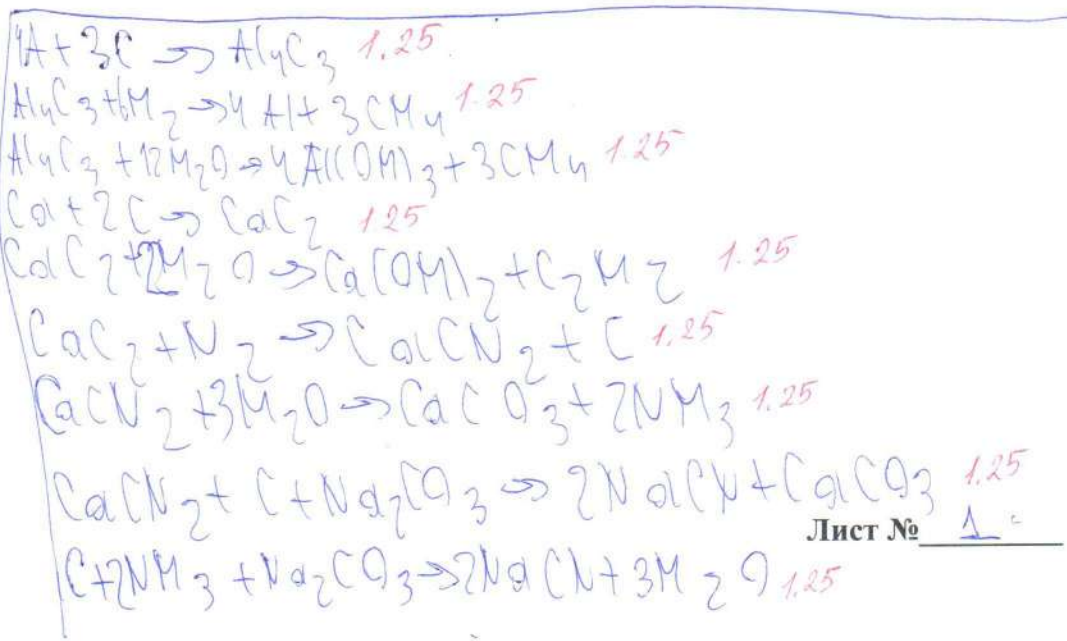 4A + 3C → Al4C3 1.25
Al4C3 + 6H2 → 4Al + 3CH4 1.25
Al4C3 + 12H2O → 4Al(OH)3 + 3CH4 1.25
Ca + 2C → CaC2 1.25
CaC2 + 2H2O → Ca(OH)2 + C2H2 1.25
CaC2 + N2 → CaCN2 + C 1.25
CaCN2 + 3H2O → CaCO3 + 2NH3 1.25
CaCN2 + C + Na2CO3 → 2NaCN + CaCO3 1.25
Лист № 1
C + 2NH3 + Na2CO3 → 2NaCN + 3H2O 1.25